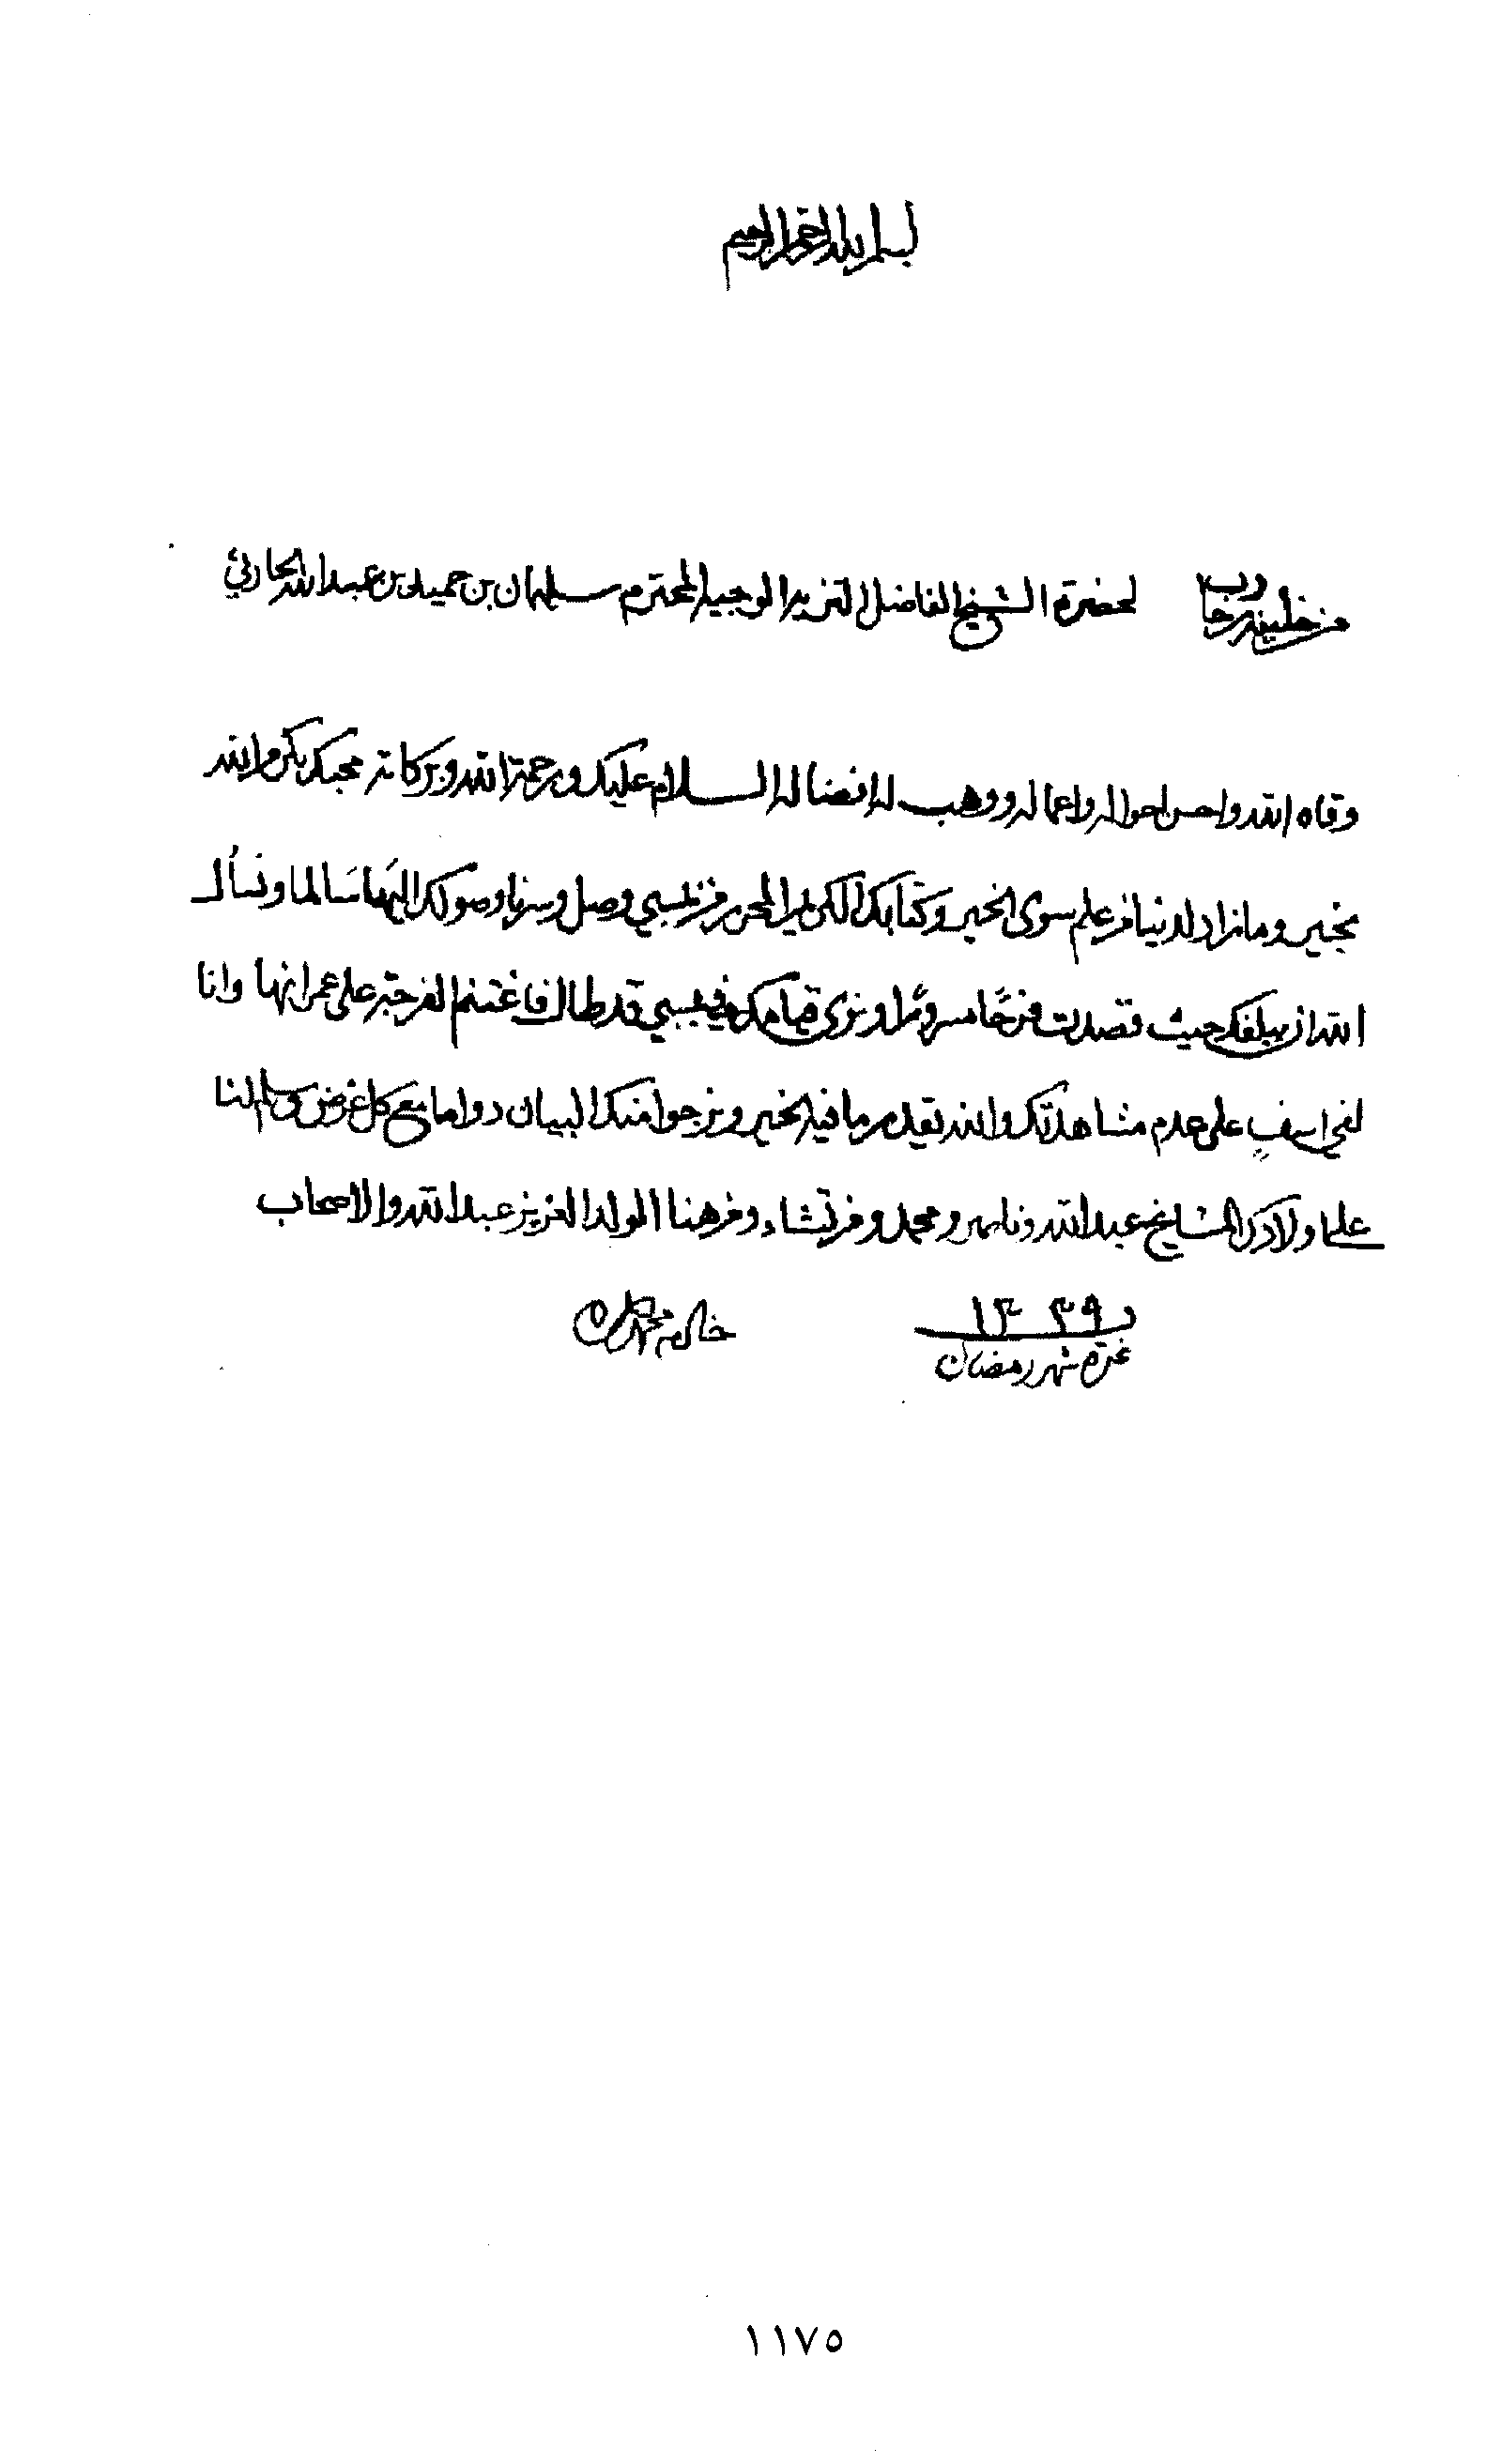 بسم الله الرحمن الرحيم
من خليفه بن حارب لحضرة الشيخ الفاضل النزيه الوجيه المحترم سليمان بن حميد بن عبدالله الحارثي
وقاه الله واحسن احواله واعماله ووهب له افضاله السلام عليك ورحمة الله وبركاته محبك بكرم الله
بخير وما زاد لدينا من علم سوى الخير وكتابك الكريم المحرر من بمبي وصل وسرنا وصولك اليها سالما ونسأل
الله ان يبلغك حيث قصدت فرحًا مسرورًا ونرى قيامك في بمبي قد طال فاغتنم الفرجة على عمرانها وانا
لفي اسفٍ على عدم مشاهدتك والله يقدر ما فيه الخير ونرجوا منك البيان دواما مع كل غرض وسلم لنا
على اولادك المشايخ عبدالله وناصر ومحمد ومن تشاء ومن هنا الولد العزيز عبدالله والاصحاب
١٣٣٩
غرة شهر رمضان
١١٧٥